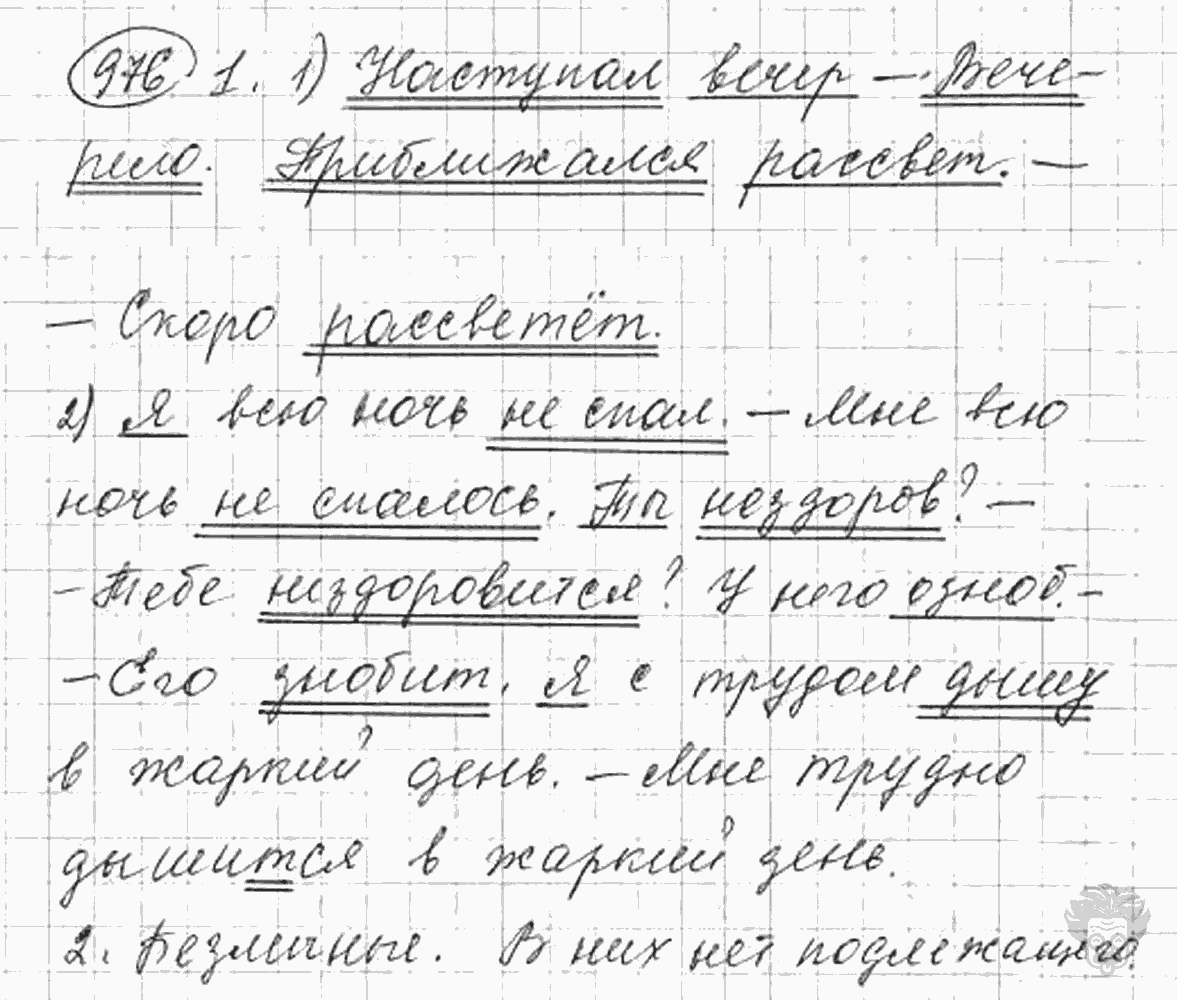 976 1. 1) Наступал вечер — Вече-
рело. Приближался рассвет. —
— Скоро рассветёт.
2) Я всю ночь не спал. — Мне всю
ночь не спалось. Ты нездоров? —
— Тебе нездоровится? У него озноб. —
— Его знобит. Я с трудом дышу
в жаркий день. — Мне трудно
дышится в жаркий день.
2. Безличные. В них нет подлежащего.